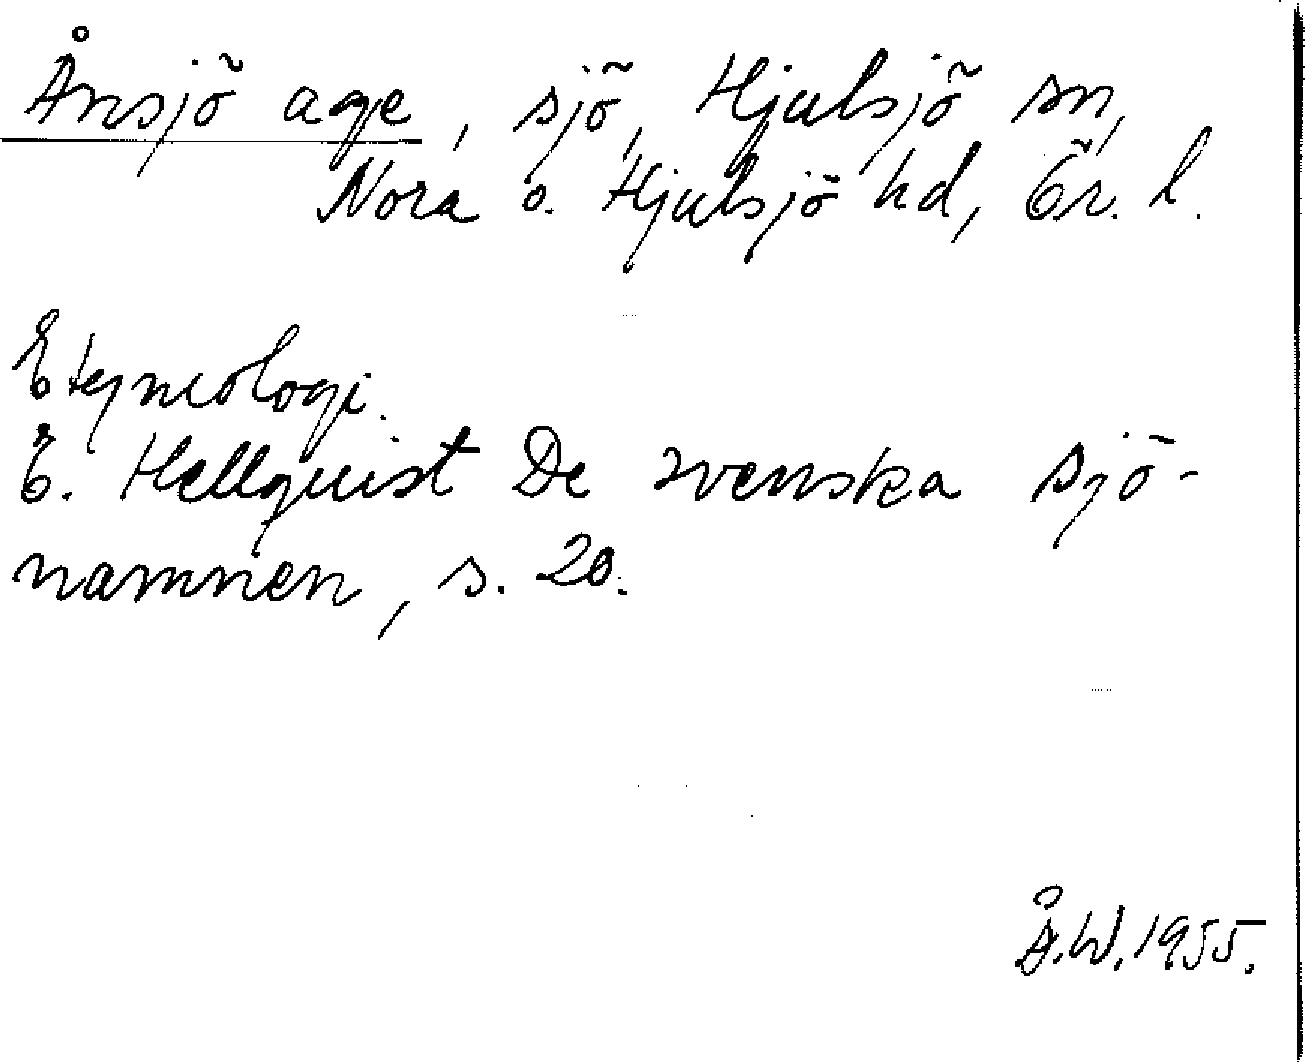 Ånsjö age, sjö, Hjulsjö sn,
Nora o. Hjulsjö hd, Ör. l.
Etymologi.
E. Hellquist De svenska sjö-
namnen, s. 20.
Å.W. 1955.